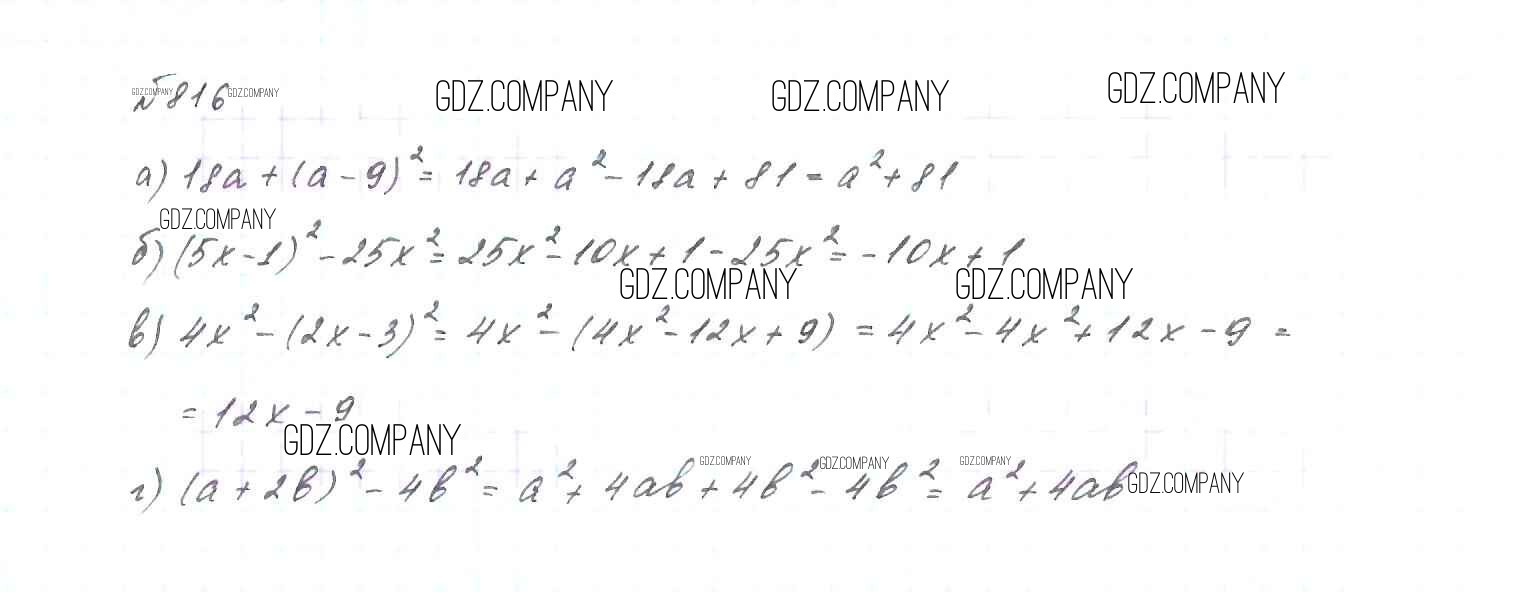 №816
GDZ.COMPANY GDZ.COMPANY GDZ.COMPANY GDZ.COMPANY GDZ.COMPANY
а) 18a + (a - 9)² = 18a + a² - 18a + 81 = a² + 81
GDZ.COMPANY
б) (5x - 1)² - 25x² = 25x² - 10x + 1 - 25x² = -10x + 1
GDZ.COMPANY GDZ.COMPANY
в) 4x² - (2x - 3)² = 4x² - (4x² - 12x + 9) = 4x² - 4x² + 12x - 9 =
= 12x - 9
GDZ.COMPANY
GDZ.COMPANY GDZ.COMPANY GDZ.COMPANY
г) (a + 2b)² - 4b² = a² + 4ab + 4b² - 4b² = a² + 4ab
GDZ.COMPANY